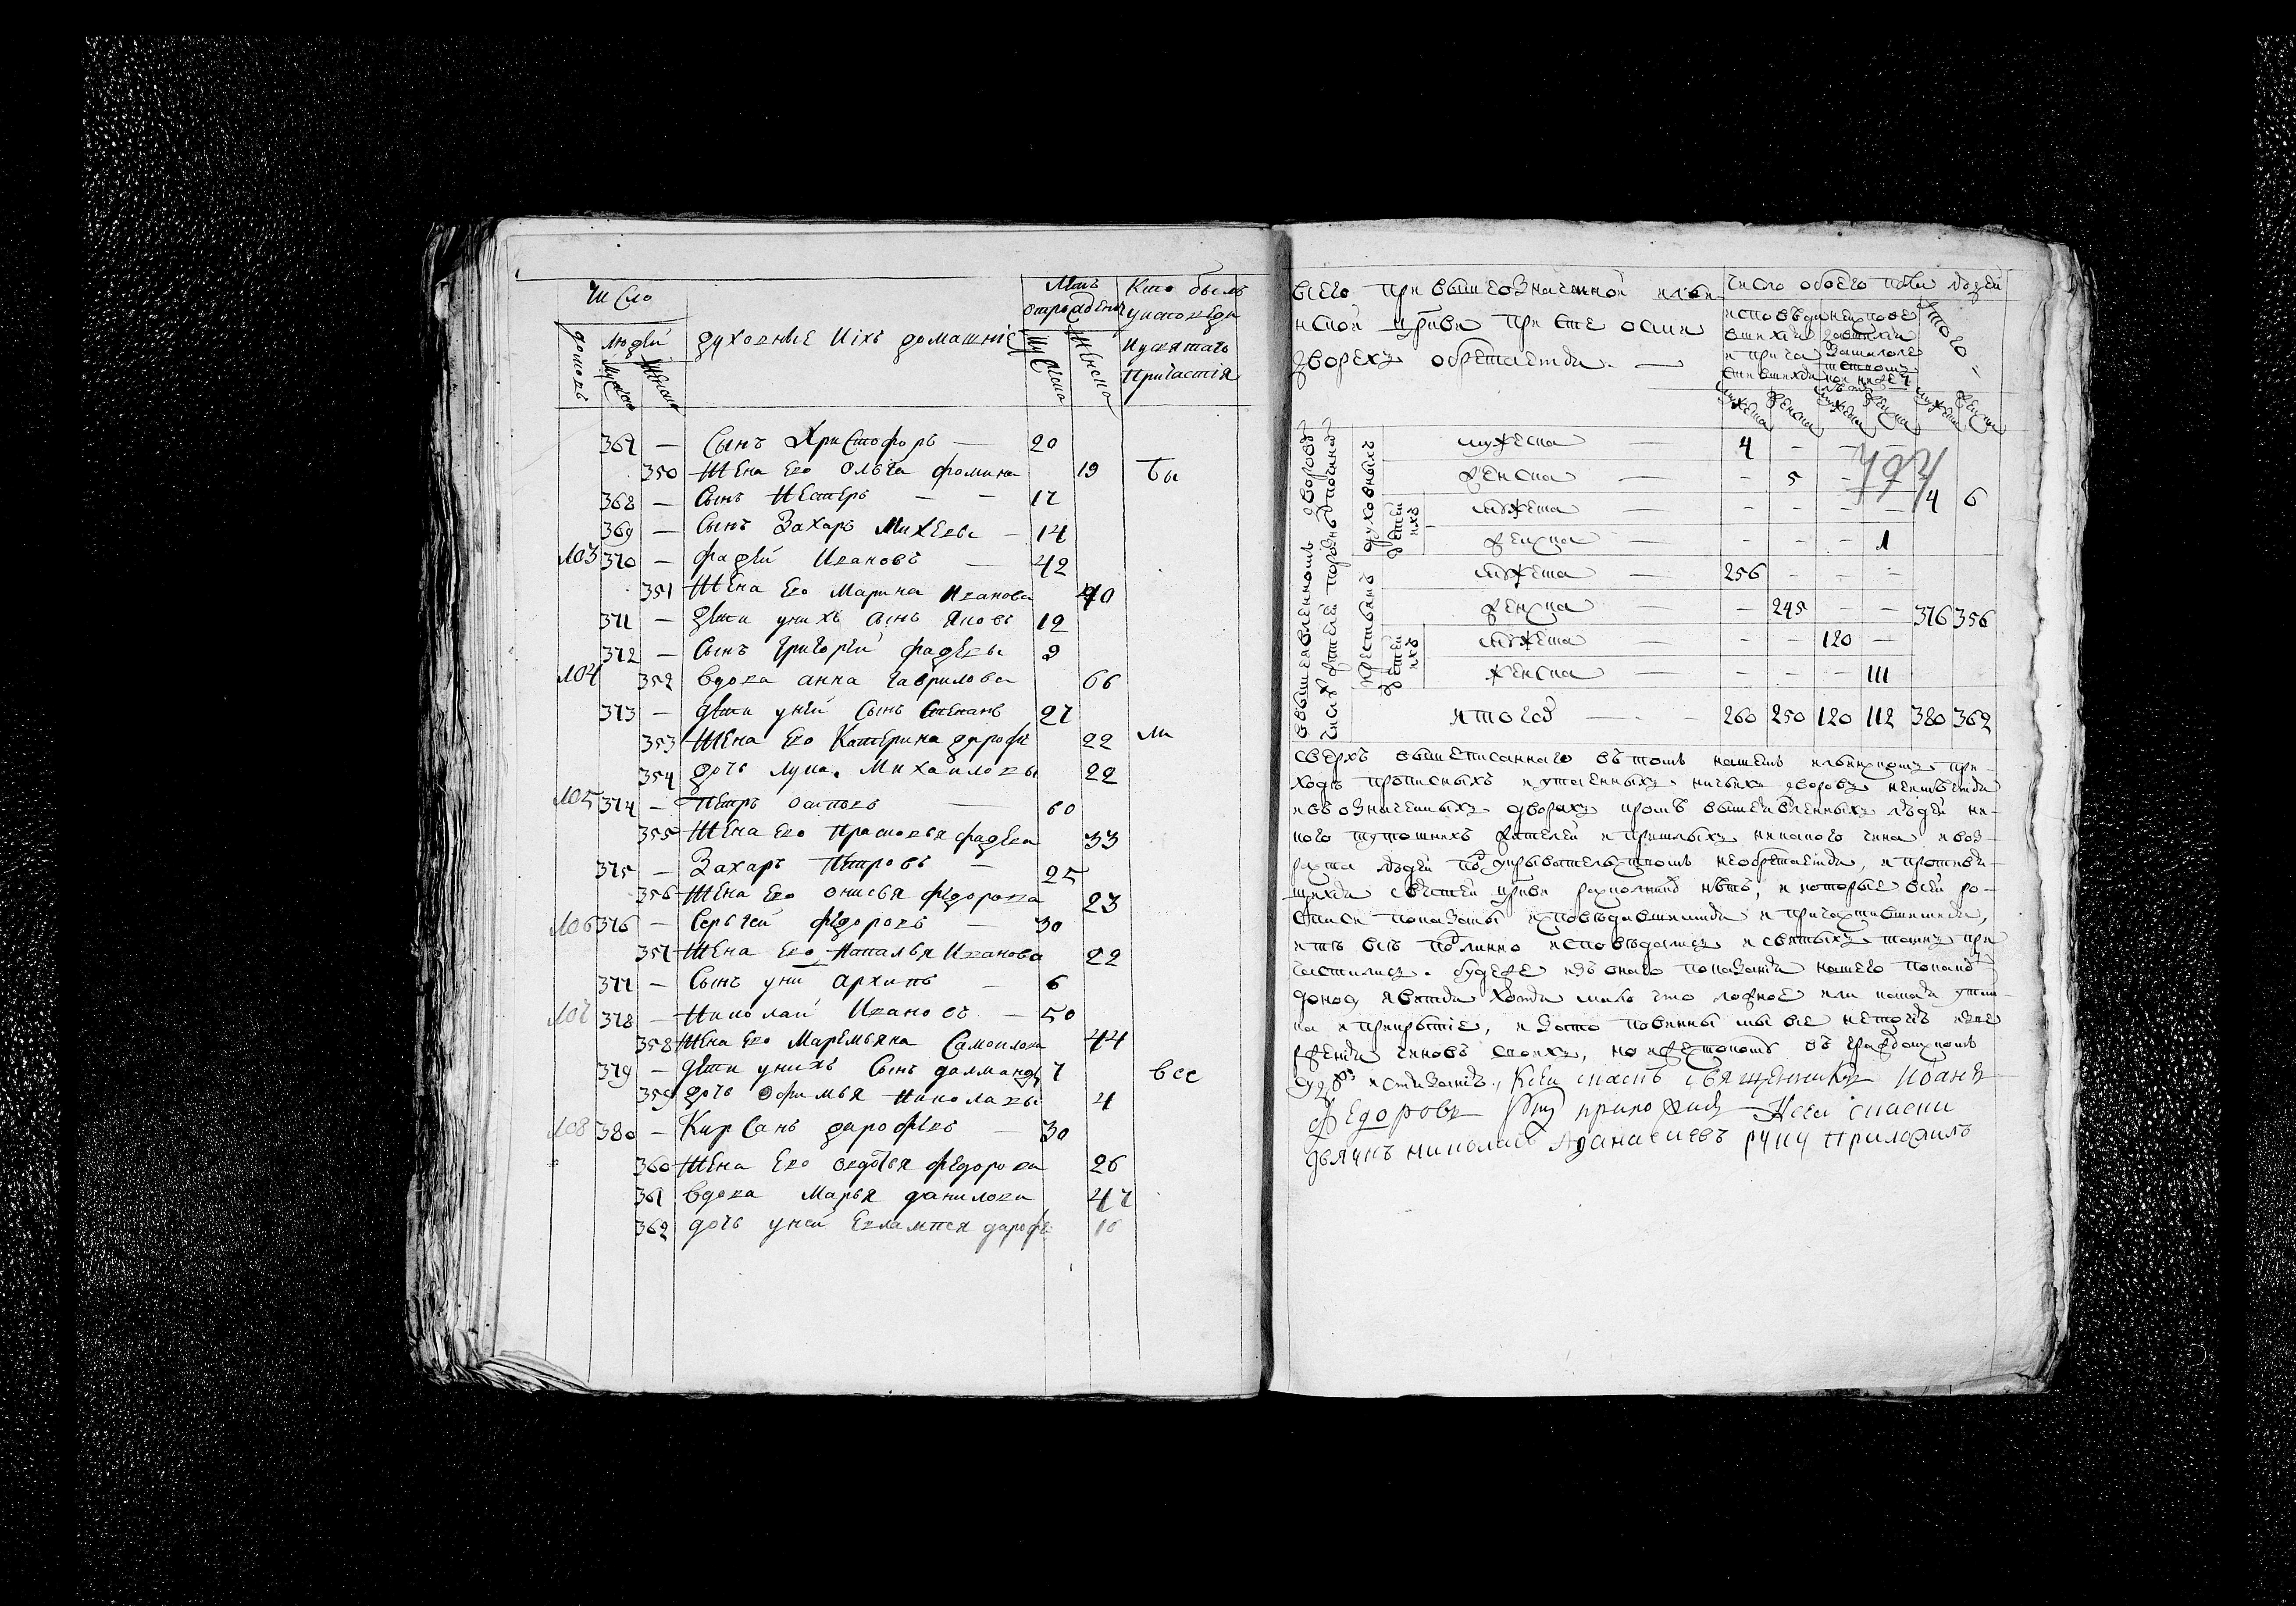 Число
Лѣтъ
Кто былъ
отрождения
у исповѣди
домовъ
людей
духовные иіхъ домашніе
мужеска
женска
и у святаго
причастія
367 — Сынъ Христофоръ — 20
350 Жена Ево Ольга фомина 19 бы
368 — Сынъ Нестеръ — — 17
369 — Сынъ Захаръ Михеевы — 14
103 370 — фадѣй Ивановъ — 42
351 Жена Ево Марина Иванова 40
371 — дѣти унихъ сынъ Яковъ 12
372 — Сынъ Григорей фадѣевы 9
104 352 вдова анна гаврилова 66
373 — дѣти уней Сынъ Степанъ 27
353 Жена Ево Катерина дарофе 22 ли
354 дочь лукия Михаиловы 22
105 374 — Петръ осиповъ — 60
355 Жена Ево Прасковья фадѣева 33
375 — Захаръ Петровъ — 25
356 Жена Ево онисья фѣдорова 23
106 376 — Сергѣй фѣдоровъ — 30
357 Жена Ево Наталья Иванова 22
377 — Сынъ уни архипъ — 6
107 378 — Николай Ивановъ — 50
358 Жена Ево Маремьяна Самоилова 44
379 — дѣти унихъ Сынъ далмандъ 7 все
359 дочь офимья николаевы 4
108 380 — Кирсанъ дарофѣевъ — 30
360 Жена Ево овдотья фѣдорова 26
361 вдова марья данилова 47
362 дочь уней Евлампея дарофе 16
всего при вышеозначенной ильи-
нской црькви при сте осми
дворехъ обретаетца —
число обоего полу людей
исповѣда
вшихся
и прича
стившихся
неиспове
давшихся
за малолѣ
тством
Итого
мужеска женска мужеска женска мужеска женска
духовныхъ
детей ихъ
крестьянъ
детей ихъ
мужеска — 4 — —
женска — — 5 —
4 6
мужеска — — — — —
женска — — — — 1
мужеска — 256 — — —
женска — — 245 — — 376 356
мужеска — — — 120 —
женска — — — — 111
итого — 260 250 120 112 380 362
сверхъ вышеписаннаго въ томъ нашемъ ильинскомъ при-
ходѣ прописныхъ и утаенныхъ ничьихъ дворовъ неимѣетца
и въ означенныхъ дворахъ кромѣ вышеявленныхъ людей ни-
кого тутошнихъ жителей и пришлыхъ никакого чина и воз-
раста людей по укрывательствомъ необретаетца, и противя-
щихся святѣй цркви раскольниковъ нѣтъ, и которые в сей ро-
списи показаны исповѣдавшимися и причастившимися,
и тѣ всѣ подлинно исповѣдались и святыхъ таинъ при
частились. буде же изъ онаго показанія нашего по какому
доносу явится хотя мало что ложное или какая утай-
ка и прикрытіе, и за то повинны мы все не точію изве
ржения чиновъ своихъ, но и жестокомъ въ гражданскомъ
суде истязаніи., К сей сказкѣ священникъ Иоаннъ
Федоровъ руку приложилъ К сей скаски
дьячокъ николай Афанасиевъ руку приложилъ